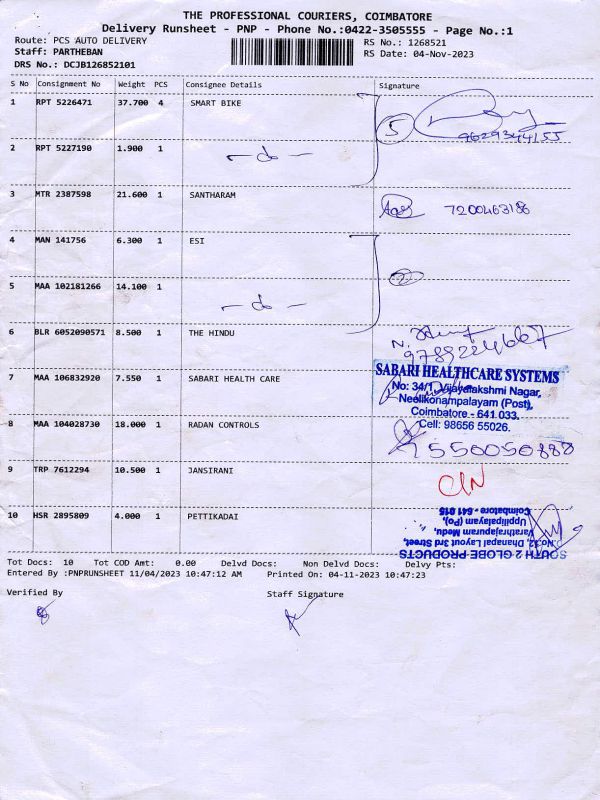 THE PROFESSIONAL COURIERS, COIMBATORE
Delivery Runsheet - PNP - Phone No.:0422-3505555 - Page No.:1
Route: PCS AUTO DELIVERY
RS No.: 1268521
Staff: PARTHEBAN
RS Date: 04-Nov-2023
DRS No.: DCJB126852101
S No Consignment No Weight PCS Consignee Details Signature
1 RPT 5226471 37.700 4 SMART BIKE
5
9629344155
2 RPT 5227190 1.900 1 - do -
3 MTR 2387598 21.600 1 SANTHARAM 7200463186
4 MAN 141756 6.300 1 ESI
2
5 MAA 102181266 14.100 1 - do -
6 BLR 6052090571 8.500 1 THE HINDU
9789224667
7 MAA 106832920 7.550 1 SABARI HEALTH CARE
SABARI HEALTHCARE SYSTEMS
No: 34/1, Vijayalakshmi Nagar,
Neelikonampalayam (Post),
Coimbatore - 641 033.
Cell: 98656 55026.
8 MAA 104028730 18.000 1 RADAN CONTROLS
9 TRP 7612294 10.500 1 JANSIRANI
10 HSR 2895809 4.000 1 PETTIKADAI
SOUTH 2 GLOBE PRODUCTS
Dhanapal Layout 3rd Street,
Varathrajapuram Medu,
Uppilipalayam (Po),
Coimbatore - 641 015
Tot Docs: 10 Tot COD Amt: 0.00 Delvd Docs: Non Delvd Docs: Delvy Pts:
Entered By :PNPRUNSHEET 11/04/2023 10:47:12 AM Printed On: 04-11-2023 10:47:23
Verified By Staff Signature